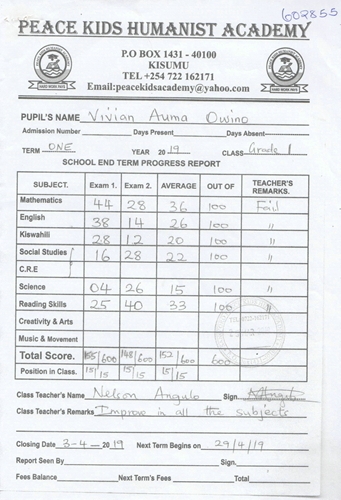 602855
PEACE KIDS HUMANIST ACADEMY
P.O BOX 1431 - 40100
KISUMU
TEL +254 722 162171
Email:peacekidsacademy@yahoo.com
PUPIL'S NAME Vivian Auma Owino
Admission Number Days Present Days Absent
TERM ONE YEAR 2019 CLASS Grade 1
SCHOOL END TERM PROGRESS REPORT
SUBJECT. Exam 1. Exam 2. AVERAGE OUT OF TEACHER'S REMARKS.
Mathematics 44 28 36 100 Fail
English 38 14 26 100 "
Kiswahili 28 12 20 100 "
Social Studies 16 28 22 100 "
C.R.E
Science 04 26 15 100 "
Reading Skills 25 40 33 100 "
Creativity & Arts
Music & Movement
Total Score. 155/600 148/600 152/600 600
Position in Class. 15/15 15/15 15/15
Class Teacher's Name Nelson Angulo Sign.
Class Teacher's Remarks Improve in all the subjects
Closing Date 3-4-2019 Next Term Begins on 29/4/19
Report Seen By Sign.
Fees Balance Next Term's Fees Total